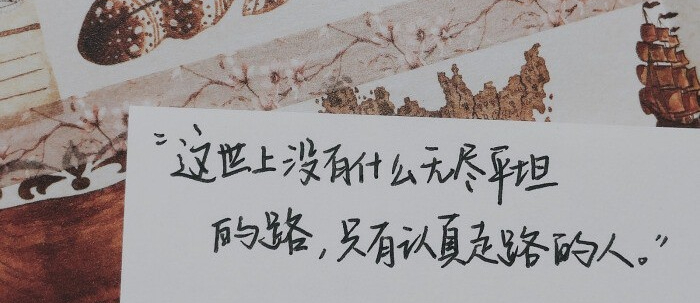 “这世上没有什么无尽平坦
的路，只有认真走路的人。”